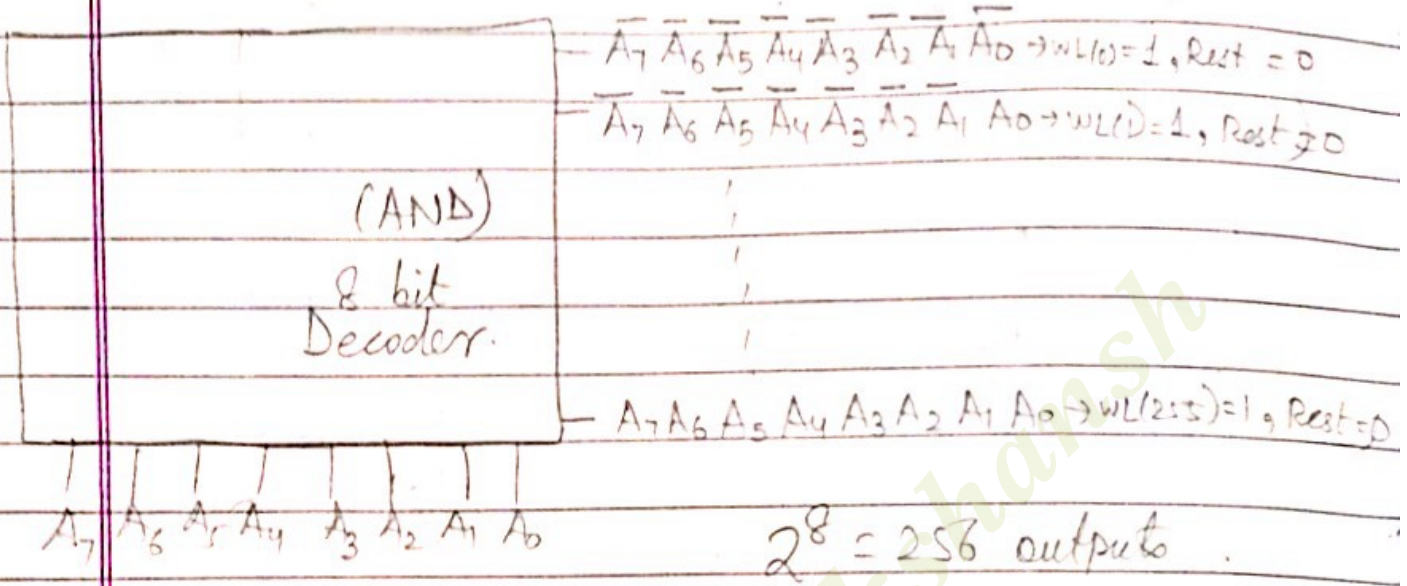 A̅7 A̅6 A̅5 A̅4 A̅3 A̅2 A̅1 A̅0 → WL(0)=1, Rest = 0
A̅7 A̅6 A̅5 A̅4 A̅3 A̅2 A̅1 A0 → WL(1)=1, Rest = 0
(AND)
8 bit
Decoder.
A7 A6 A5 A4 A3 A2 A1 A0 → WL(255)=1, Rest=0
A7 A6 A5 A4 A3 A2 A1 A0
2⁸ = 256 outputs.
shansh